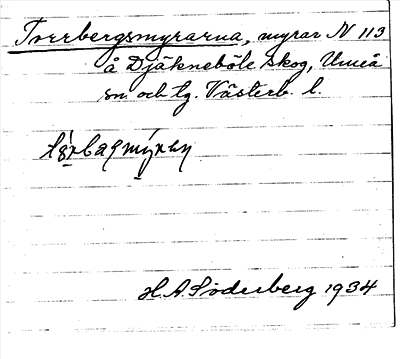 Torrbergsmyrarna, myrar N 113
å Djäkneböle skog, Umeå
sn och tg. Västerb. l.
H.A. Söderberg 1934